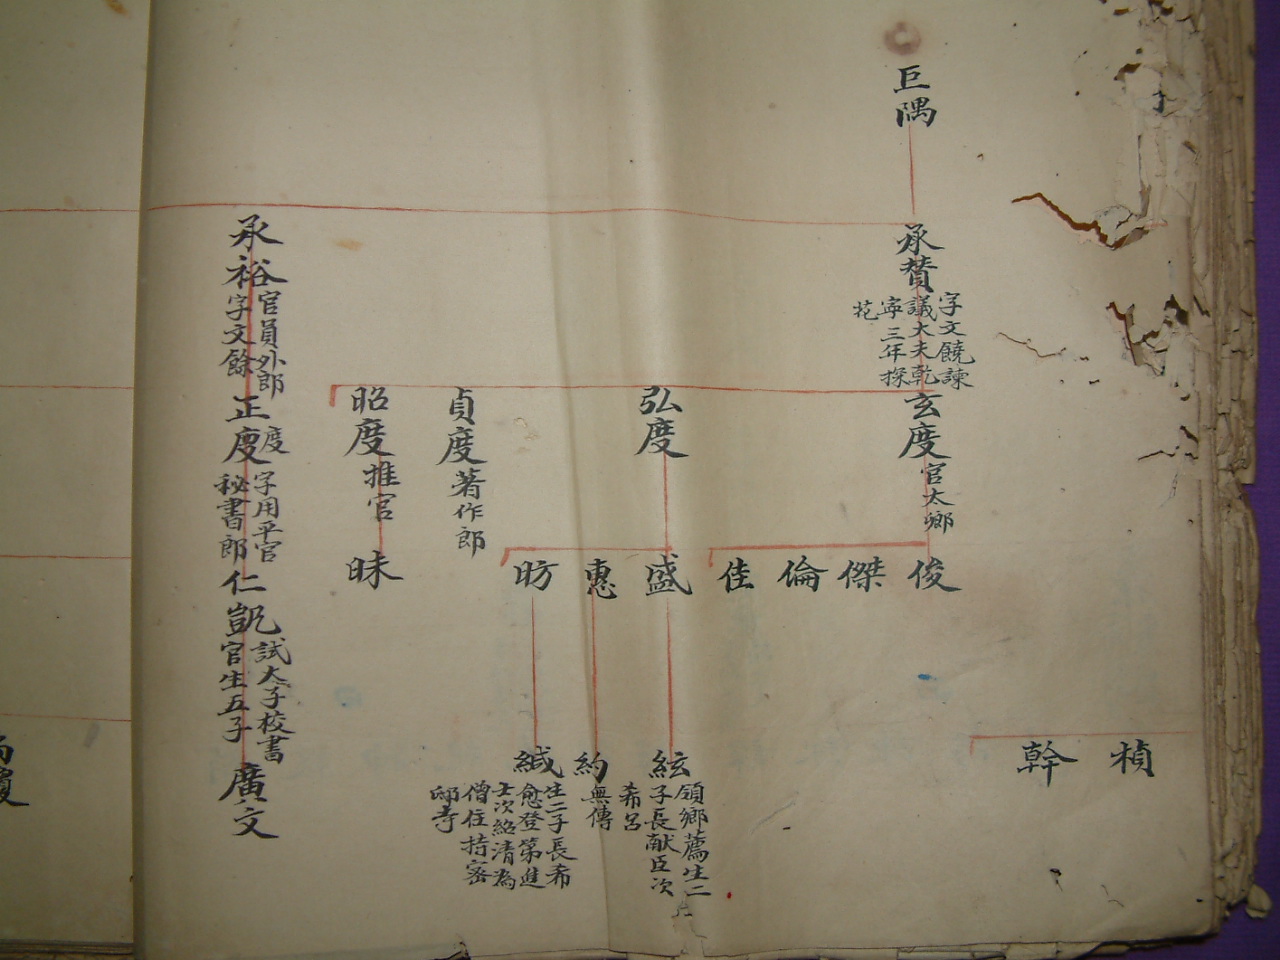 巨隅
承贊
字文饒諫
議大夫乾
寧三年探
花
玄度
官太卿
俊
傑
倫
佳
弘度
盛
惠
昉
貞度
著作郎
昭度
推官
昧
承裕
官員外郎
字文餘
正度
度
字用平官
秘書郎
仁凱
試太子校書
官生五子
廣文
楨
幹
絃
領鄉薦生二
子長献臣次
希呂
約
無傳
緘
生二子長希
愈登第進
士次紹清為
僧住持密
印寺